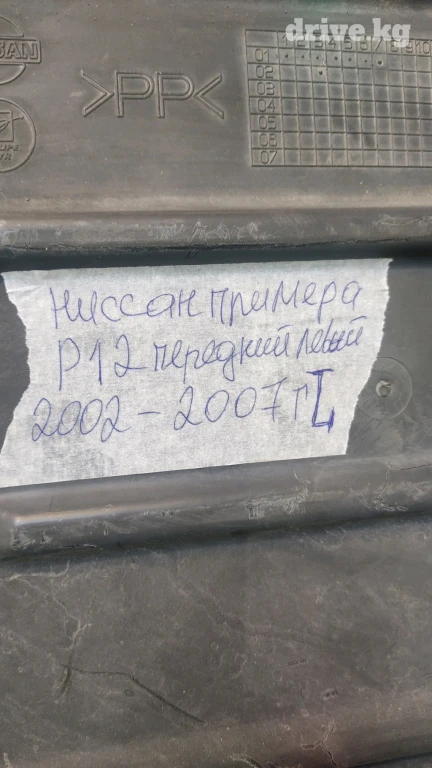 drive.kg
SSAN
>PP<
1 2 3 4 5 6 7 8 9 10
01
02
03
04
05
06
07
ниссан примера
P12 передний левый
2002 - 2007 г L